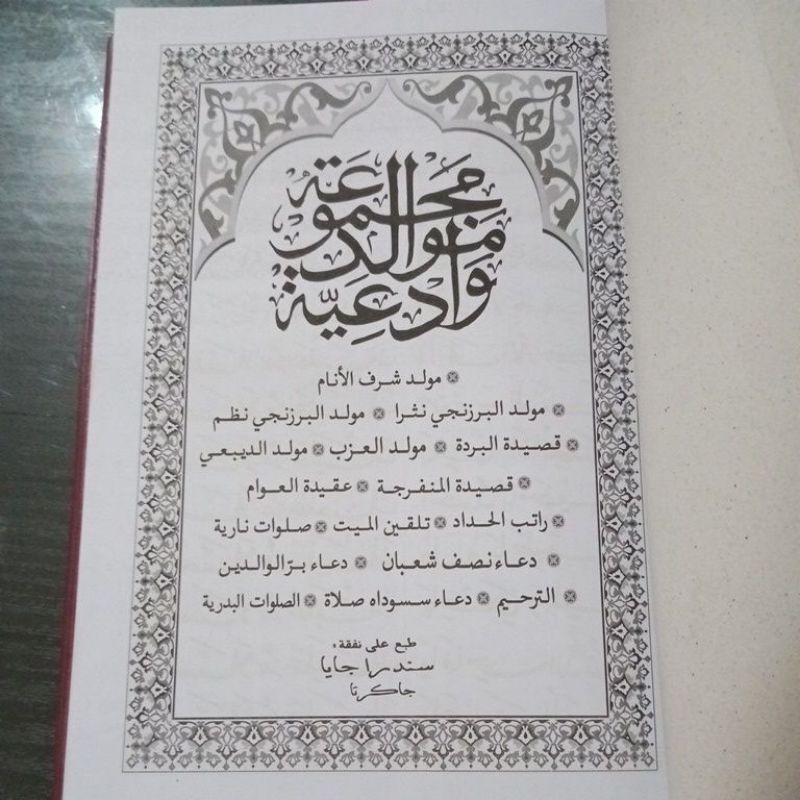 مجموعة
موالد
وأدعية
* مولد شرف الأنام
* مولد البرزنجي نثرا * مولد البرزنجي نظم
* قصيدة البردة * مولد العزب * مولد الديبعي
* قصيدة المنفرجة * عقيدة العوام
* راتب الحداد * تلقين الميت * صلوات نارية
* دعاء نصف شعبان * دعاء برّ الوالدين
* الترحيم * دعاء سسوداه صلاة * الصلوات البدرية
طبع على نفقة:
سندرا جايا
جاكرتا